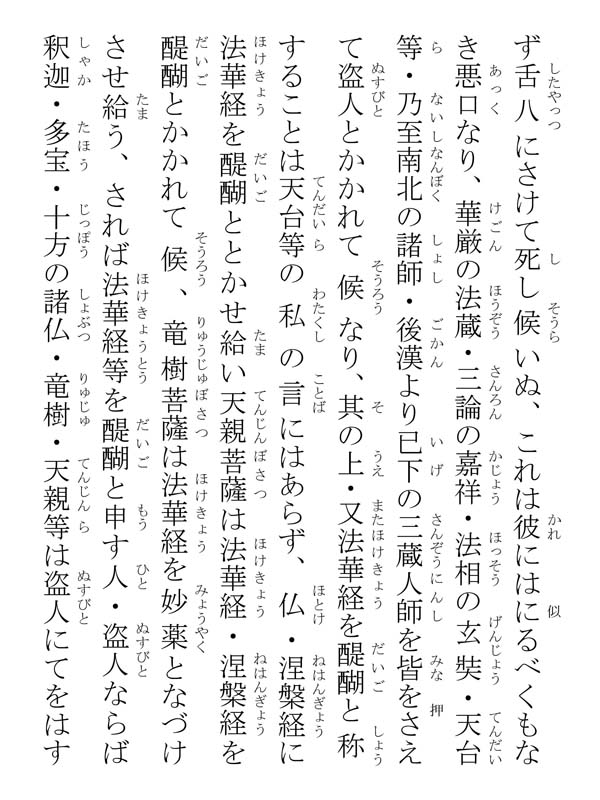 ず舌八にさけて死し候いぬ、これは彼にはにるべくもな
き悪口なり、華厳の法蔵・三論の嘉祥・法相の玄奘・天台
等・乃至南北の諸師・後漢より已下の三蔵人師を皆をさえ
て盗人とかかれて候なり、其の上・又法華経を醍醐と称
することは天台等の私の言にはあらず、仏・涅槃経に
法華経を醍醐ととかせ給い天親菩薩は法華経・涅槃経を
醍醐とかかれて候、竜樹菩薩は法華経を妙薬となづけ
させ給う、されば法華経等を醍醐と申す人・盗人ならば
釈迦・多宝・十方の諸仏・竜樹・天親等は盗人にてをはす